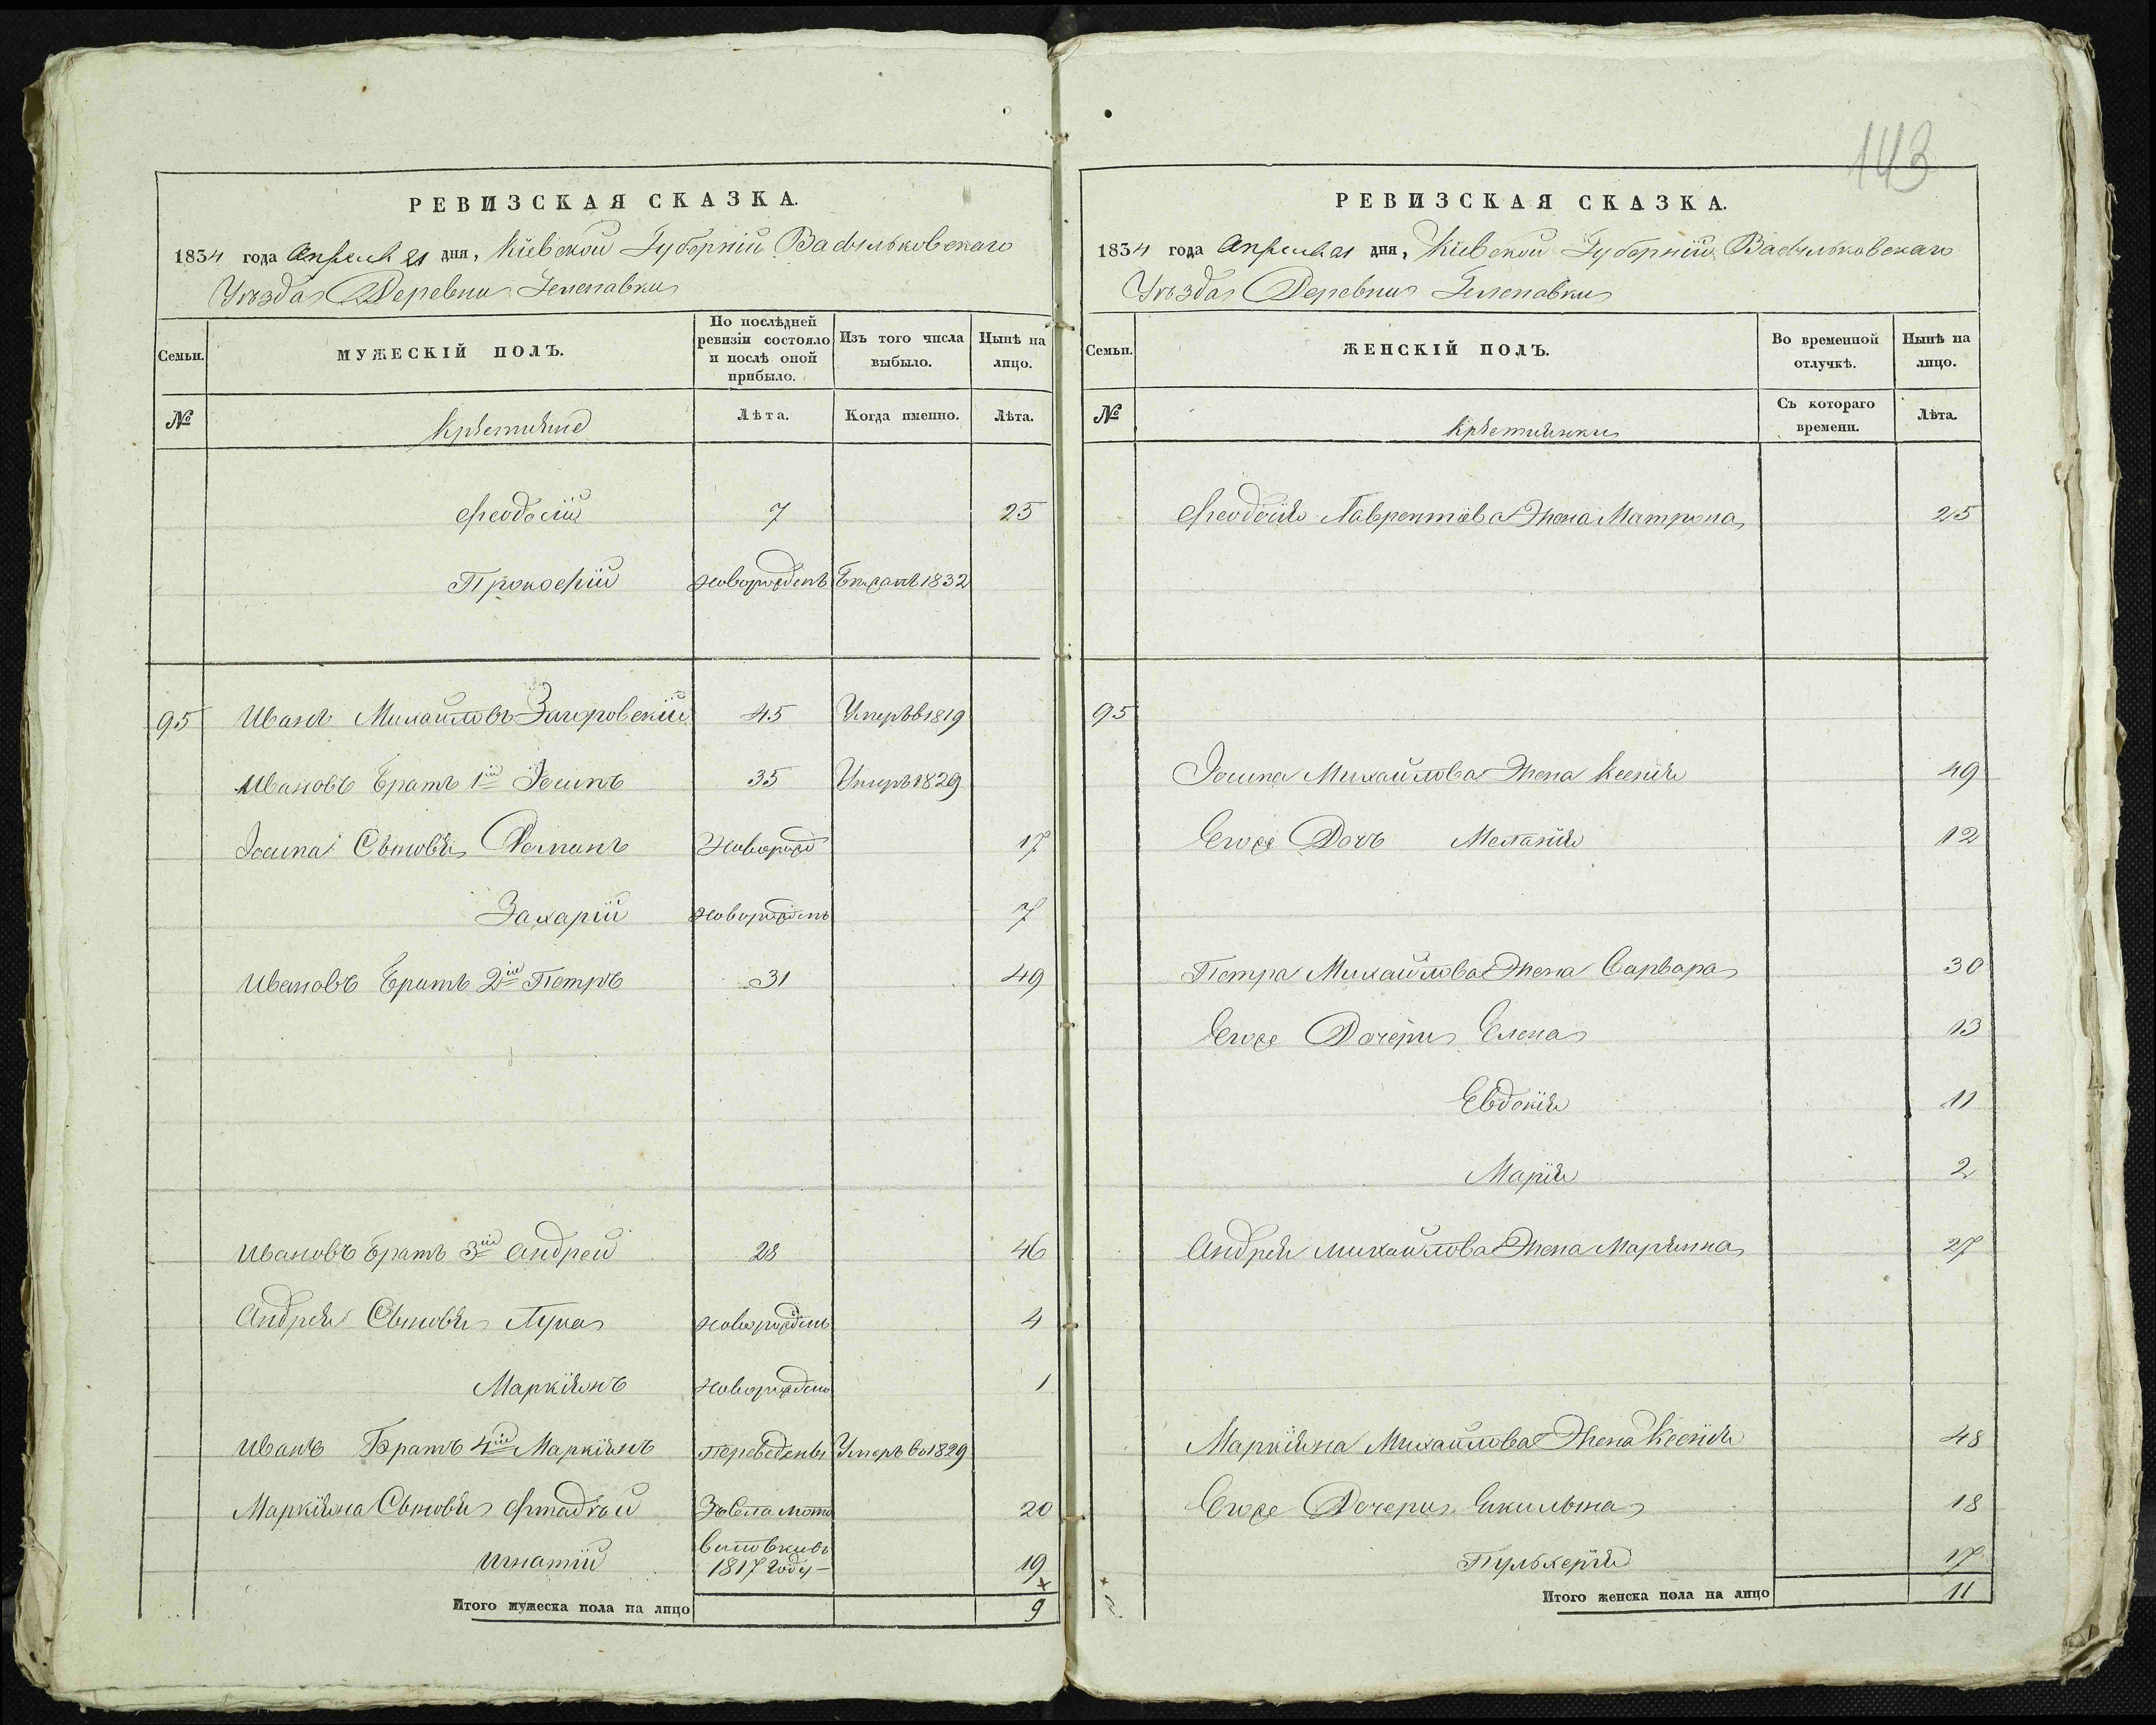 143
РЕВИЗСКАЯ СКАЗКА.
1834 года Апреля 21 дня, Кіевской Губерніи Васильковскаго
Уѣзда Деревни
Семьи.
МУЖЕСКІЙ ПОЛЪ.
По послѣдней ревизіи состояло и послѣ оной прибыло.
Изъ того числа выбыло.
Нынѣ на лицо.
№
Крестьяне
Лѣта.
Когда именно.
Лѣта.
Феодосій 7 25
Прокофій новорожденъ 1832
95 Иванъ Михайловъ 45 Умеръ в 1819
Ивановъ братъ 1й Іосипъ 35 Умеръ 1829
Іосипа Сыновья Романъ Новорожд 17
Захарій новорожденъ 7
Ивановъ братъ 2й Петръ 31 49
Ивановъ братъ 3й Андрей 28 46
Андрея Сыновья Лука новорожденъ 4
Маркіянъ новорожденъ 1
Иванъ Братъ 4й Маркіянъ переведены Умеръ во 1829
Маркіяна Сыновья Фтадѣй 20
Игнатій 1817 году 19
Итого мужеска пола на лицо 9
РЕВИЗСКАЯ СКАЗКА.
1834 года Апреля 21 дня, Кіевской Губерніи Васильковскаго
Уѣзда Деревни
Семьи.
ЖЕНСКІЙ ПОЛЪ.
Во временной отлучкѣ.
Нынѣ на лицо.
№
Крестьянки
Съ котораго времени.
Лѣта.
Феодосія Лаврентіева Жена Матрона 25
95
Іосипа Михайлова Жена Ксенія 49
Егоже Дочъ Меланія 12
Петра Михайлова Жена Варвара 30
Егоже Дочери Елена 13
Евдокія 11
Марія 2
Андрея Михайлова Жена Маріянна 27
Маркіяна Михайлова Жена Ксенія 48
Егоже Дочери Акилина 18
Пульхерія 17
Итого женска пола на лицо 11